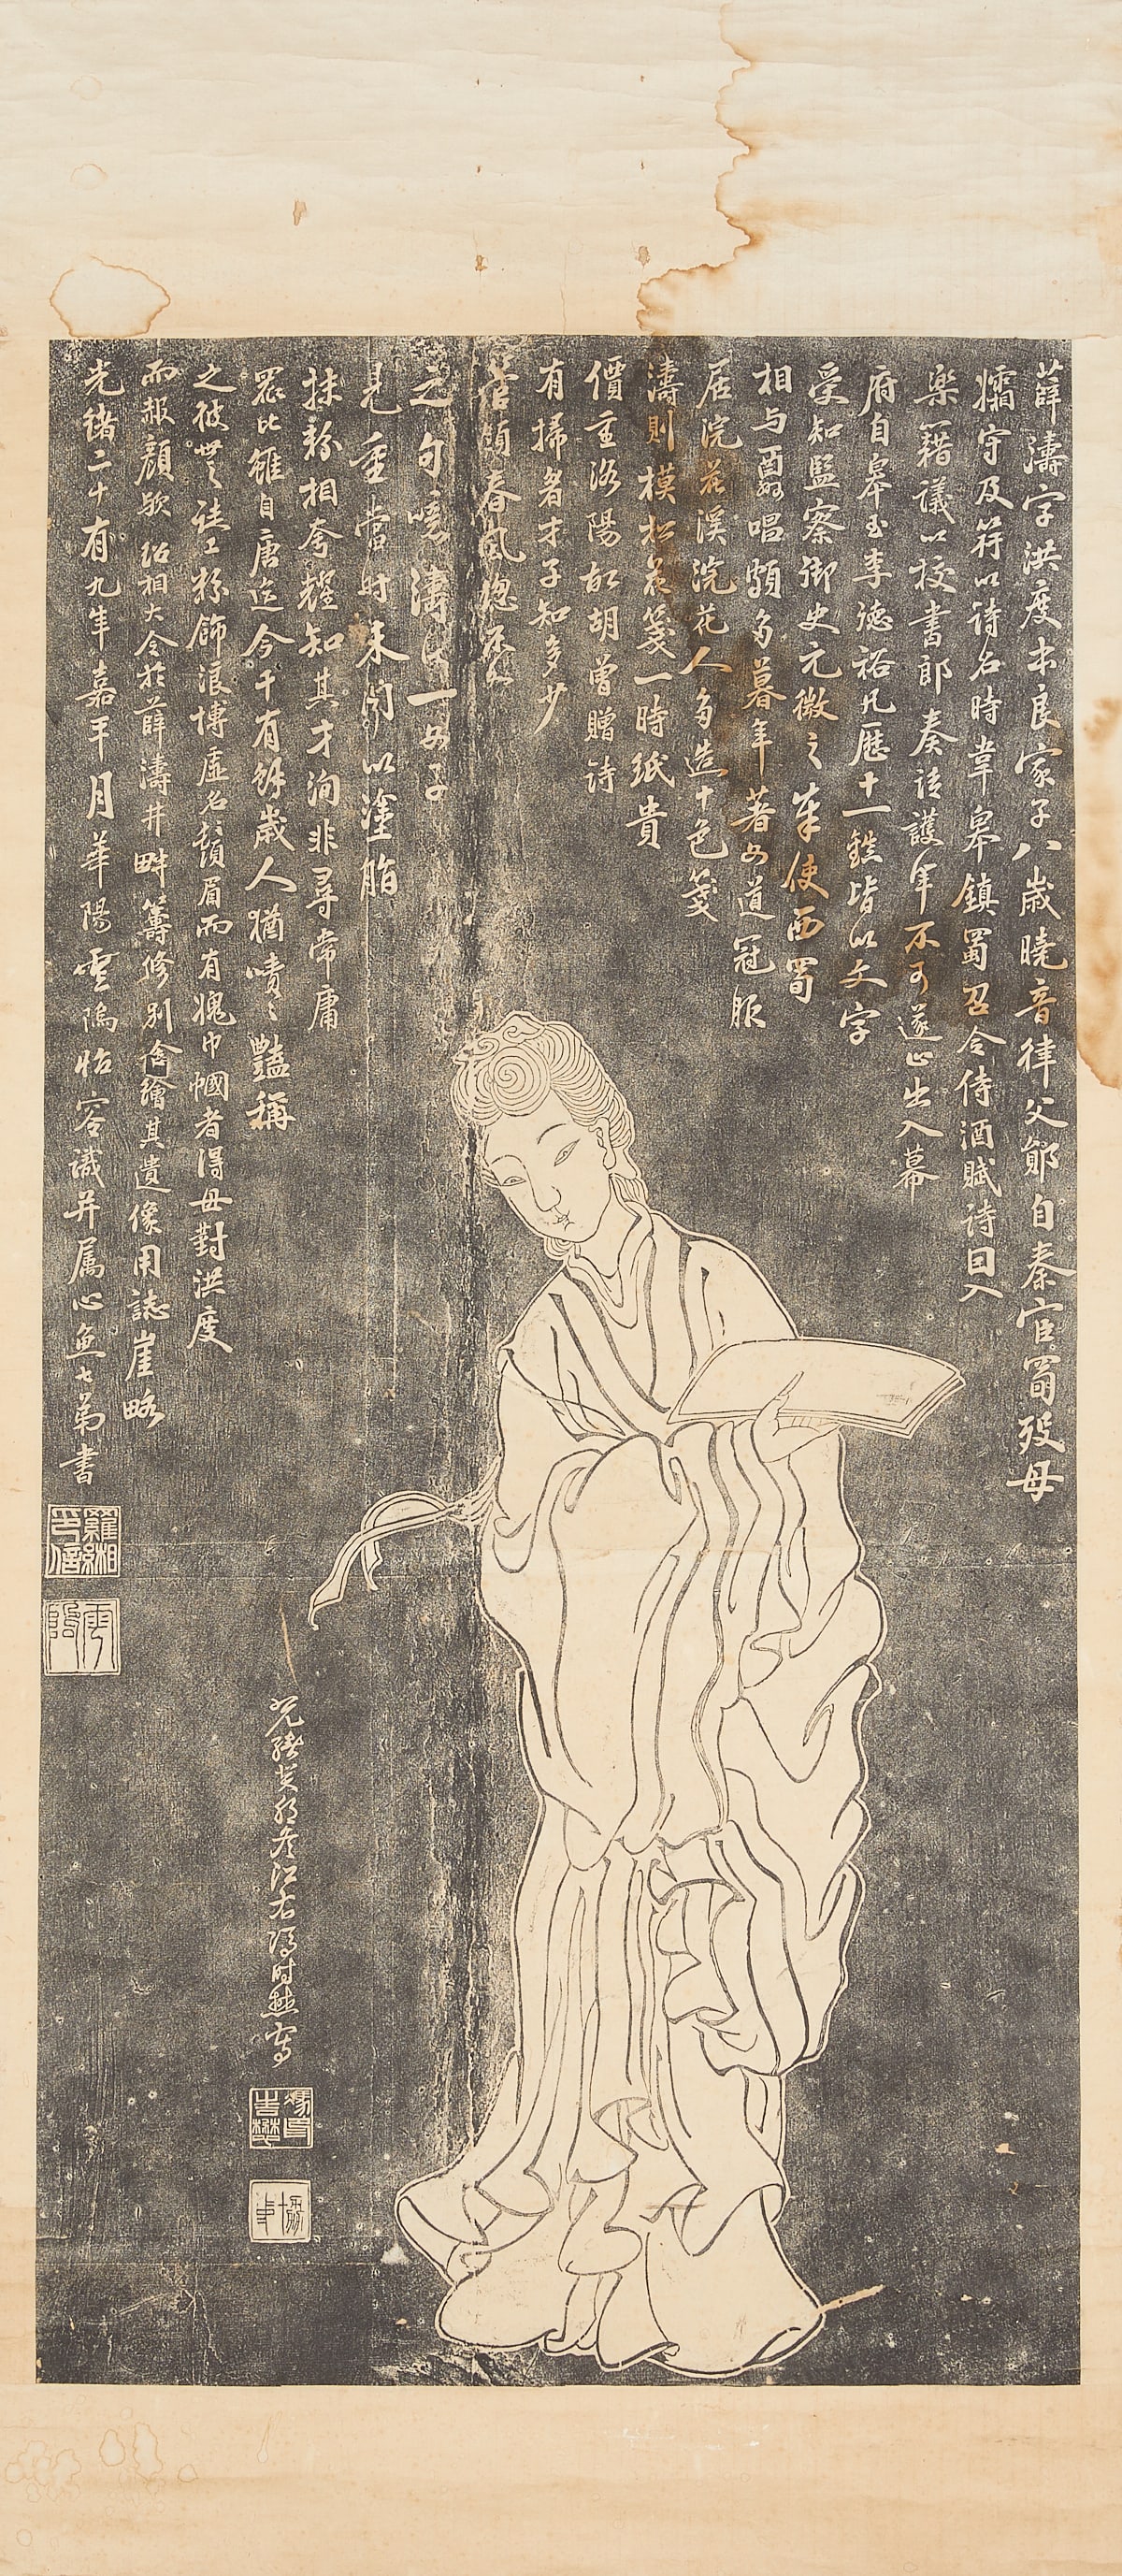 薛濤字洪度本良家子八歲曉音律父鄖自秦宦蜀歿母
孀守及笄以詩名時韋皋鎮蜀召令侍酒賦詩曰入
樂籍議以校書郎奏請護軍不可遂止出入幕
府自皋至李德裕凡歷十一鎮皆以文字
受知監察御史元微之奉使西蜀
相与酬唱頗多暮年著女道冠服
居浣花溪浣花人多造十色箋
濤則模松花箋一時紙貴
價重洛陽故胡曾贈詩
有掃眉才子知多少
管領春風總不如
之句噫濤以一女子
見重當時未聞以塗脂
抹粉相夸耀知其才洵非尋常庸
衆比雖自唐迄今千有餘歲人猶嘖〻豔稱
之彼世之徒工粉飾浪博虛名鬚眉而有愧巾幗者得毋對洪度
而赧顏歟 紹相大令於薛濤井畔籌修別墅繪其遺像用誌崖略
光緒二十有九年嘉平月華陽雲隖怡客識并屬心魚七弟書
羅湘印信
雲隖
光緒癸卯冬江右馮時懋寫